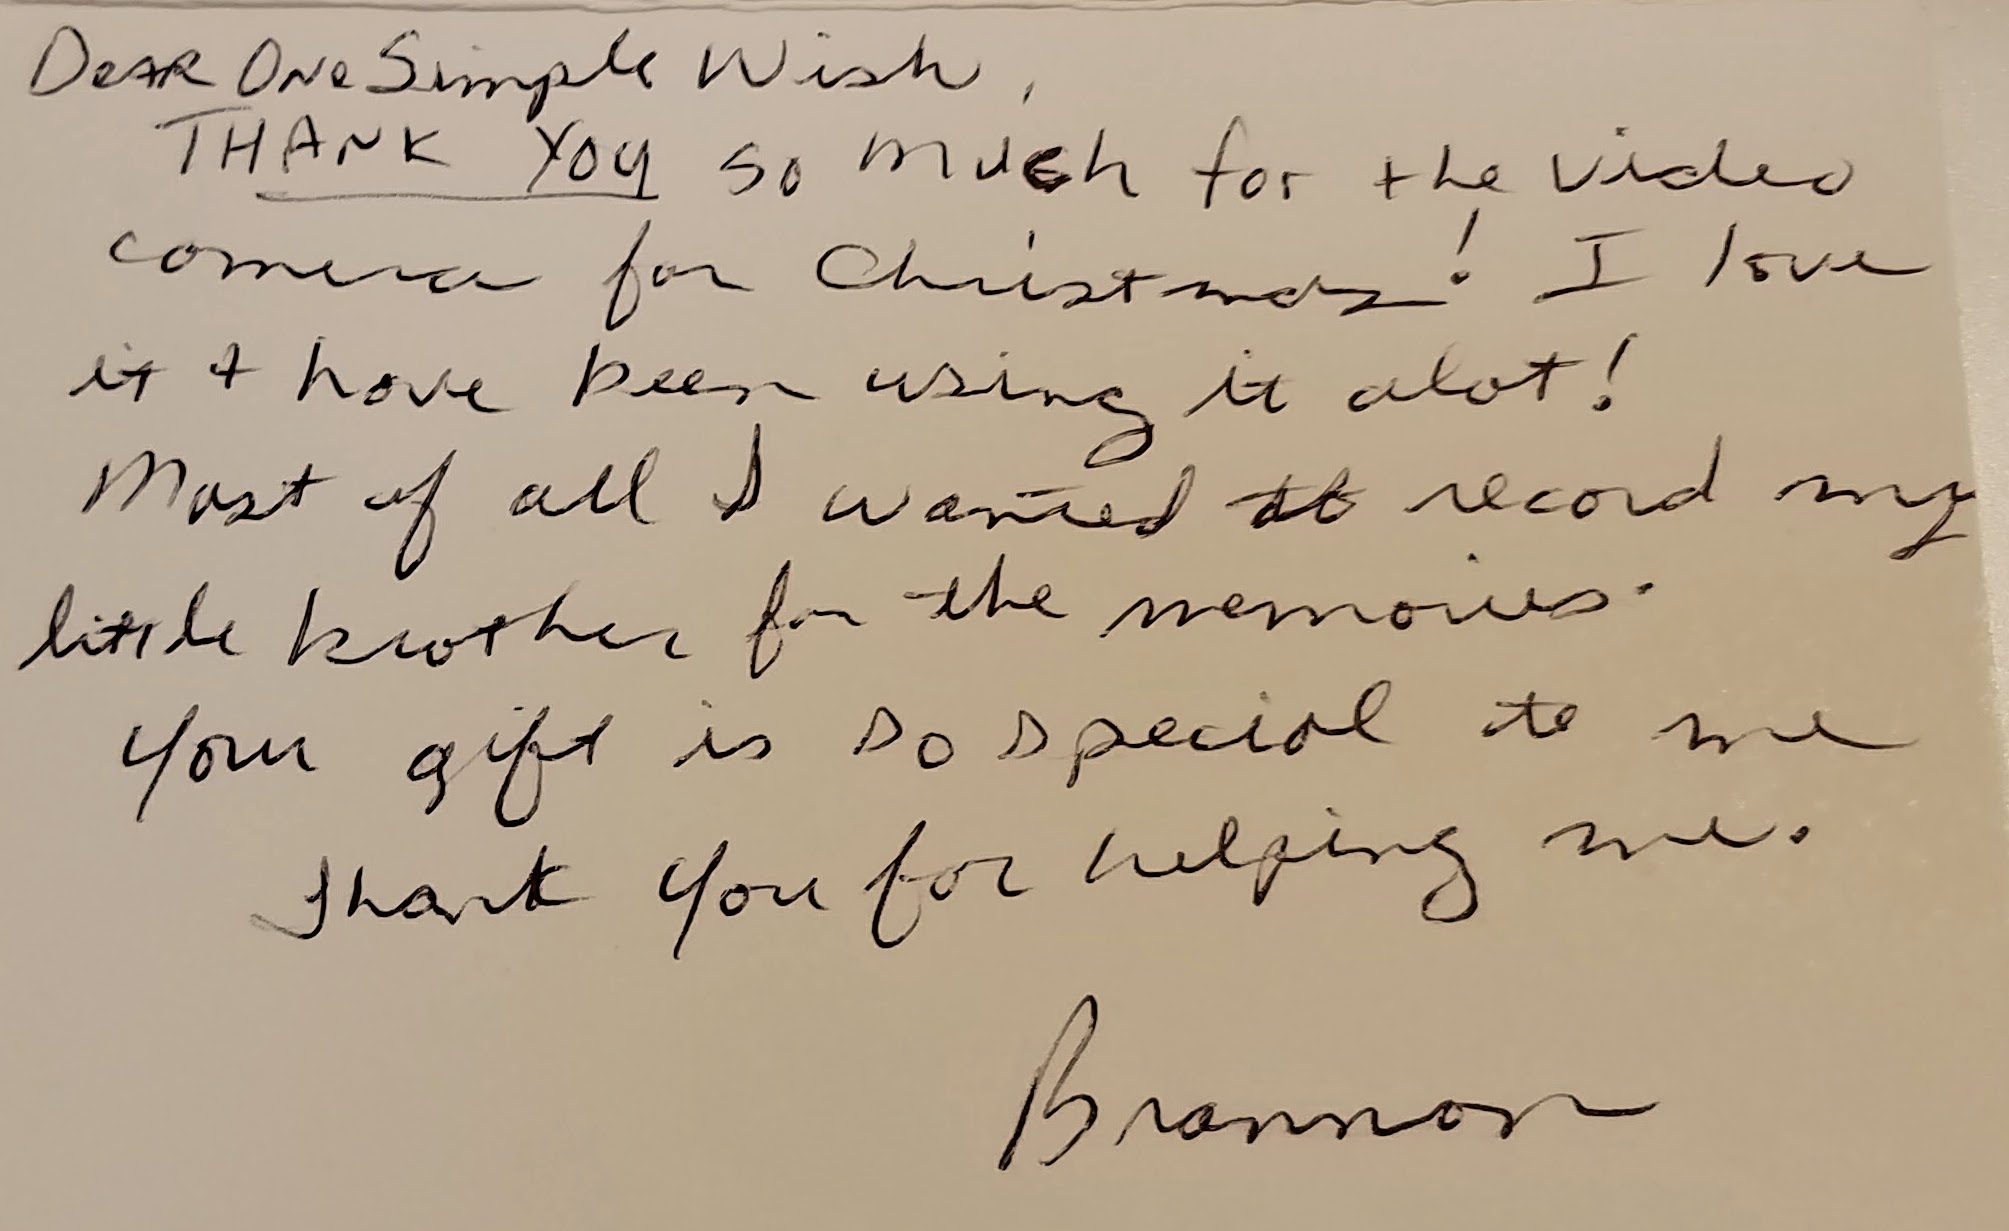 Dear One Simple Wish,
THANK YOU so much for the video
camera for Christmas! I love
it + have been using it alot!
Most of all I wanted to record my
little brother for the memories.
Your gift is so special to me
Thank you for helping me.
Brannon